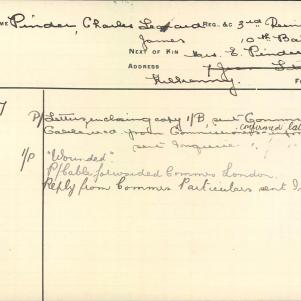 ME Pinder, Charles Leonard REG. &C 3rd Rein
James 10th Ba
NEXT OF KIN Mrs. E. Pinder
ADDRESS 7
Kilkenny. F
7 P/ Letter enclosing copy 1/B, sent Comm
Cable used from Commrs confirmed lat
sent Inquirer
1/P "Wounded"
P/Cable forwarded Commrs London.
Reply from Commrs Particulars sent I